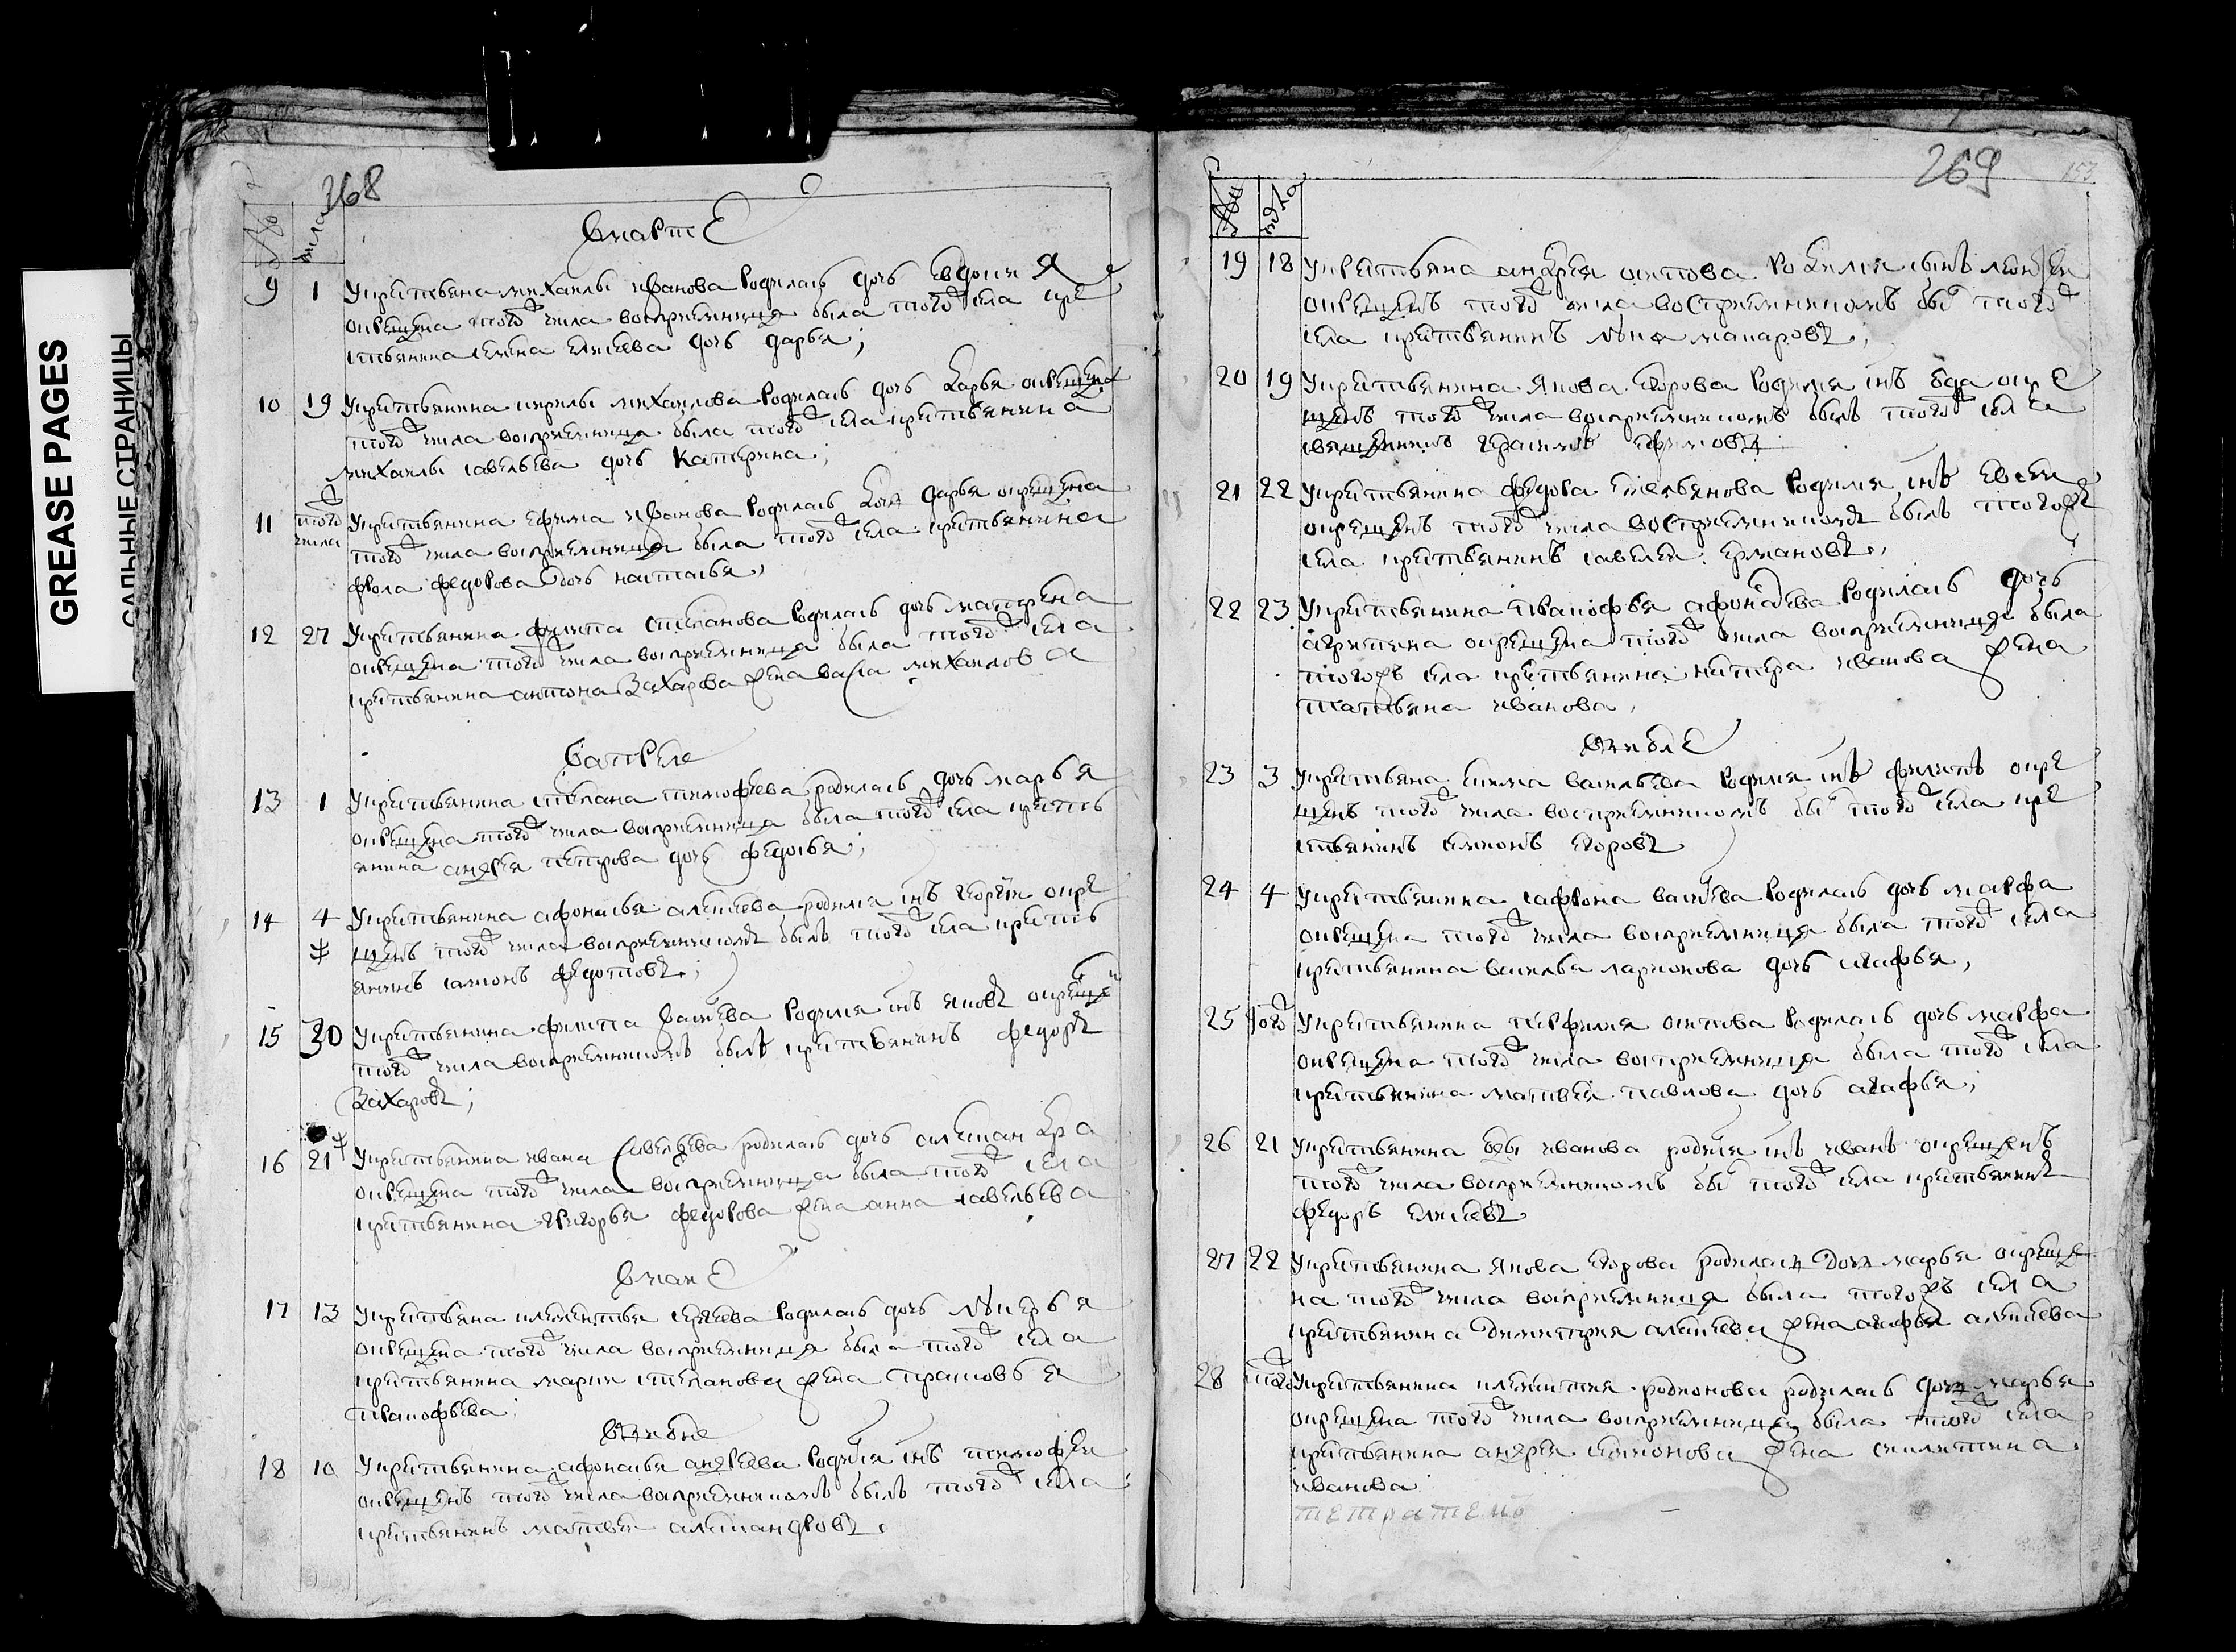 GREASE PAGES
САЛЬНЫЕ СТРАНИЦЫ
268
№ числа
вмарте
9 1 Укрстьянина михаилы иванова родилась дочь евдокия
окрещена тогож числа восприемница была тогож села кре
стьянина семена елисеева дочь дарья;
10 19 Укрстьянина кирилы михаилова родилась дочь дарья окрещена
тогож числа восприемница была тогож села крстьянина
михаилы савельева дочь катерина;
11 тогож числа Укрстьянина ефима иванова родилась дочь дарья окрещена
тогож числа восприемница была тогож села крстьянина
фрола федорова дочь настасья,
12 27 Укрстьянина филипа степанова родилась дочь матрена
окрещена тогож числа восприемница была тогож села
крстьянина антона захарова жена васса михаилова
вапреле
13 1 Укрстьянина степана тимофеева родилась дочь марья
окрещена тогож числа восприемница была тогож села кресть
янина андрея петрова дочь федосья;
14 4 Укрстьянина афонасья алексеева родился снъ окре
щенъ тогож числа восприемникомъ былъ тогож села кресть
янинъ самонъ федотовъ;
15 30 Укрстьянина филипа васильева родился снъ яковъ окрещен
тогож числа восприемникомъ былъ крстьянинъ федоръ
захаровъ;
16 21 Укрстьянина ивана савельева родилась дочь александра
окрещена тогож числа восприемница была тогож села
крстьянина григорья федорова жена анна савельева
вмаие
17 13 Укрстьянина клементья сергеева родилась дочь лукерья
окрещена тогож числа восприемница была тогож села
крстьянина марка степанова жена прасковья
пракофьева
виюне
18 10 Укрстьянина афонасья андреева родился снъ тимофеи
окрещенъ тогож числа восприемникомъ былъ тогож села
крстьянинъ матвеи александровъ.
269
153
№ числа
19 18 Укрстьянина андрея осипова родился сынъ
окрещенъ тогож числа восприемникомъ былъ тогож
села крстьянинъ лука макаровъ;
20 19 Укрстьянина якова егорова родился снъ окре
щенъ тогож числа восприемникомъ былъ тогож села
священникъ герасимъ ефимовъ
21 22 Укрстьянина федора емельянова родился снъ евсеи
окрещенъ тогож числа восприемникомъ былъ тогожъ
села крстьянинъ савелеи ермановъ,
22 23 Укрстьянина пракофья афонасева родилась дочь
агрипена окрещена тогож числа восприемница была
тогожъ села крстьянина иванова жена
татьяна иванова,
виюле
23 3 Укрстьянина васильева родился снъ филипъ окре
щенъ тогож числа восприемникомъ былъ тогож села кре
стьянинъ семионъ егоровъ
24 4 Укрстьянина сафрона васильева родилась дочь марфа
окрещена тогож числа восприемница была тогож села
крстьянина василья ларионова дочь агафья,
25 тогож Укрстьянина перфилья осипова родилась дочь марфа
окрещена тогож числа восприемница была тогож села
крстьянина матвея павлова дочь агафья;
26 21 Укрстьянина иванова родился снъ иванъ окрещенъ
тогож числа восприемникомъ былъ тогож села крстьянинъ
федоръ елисеевъ
27 22 Укрстьянина якова егорова родилась дочь марья окреще
на тогож числа восприемница была тогожъ села
крстьянина димитрея алексеева жена агафья алексеева
28 тогож Укрстьянина родионова родилась дочь марья
окрещена тогож числа восприемница была тогож села
крстьянина андрея семионова жена
иванова